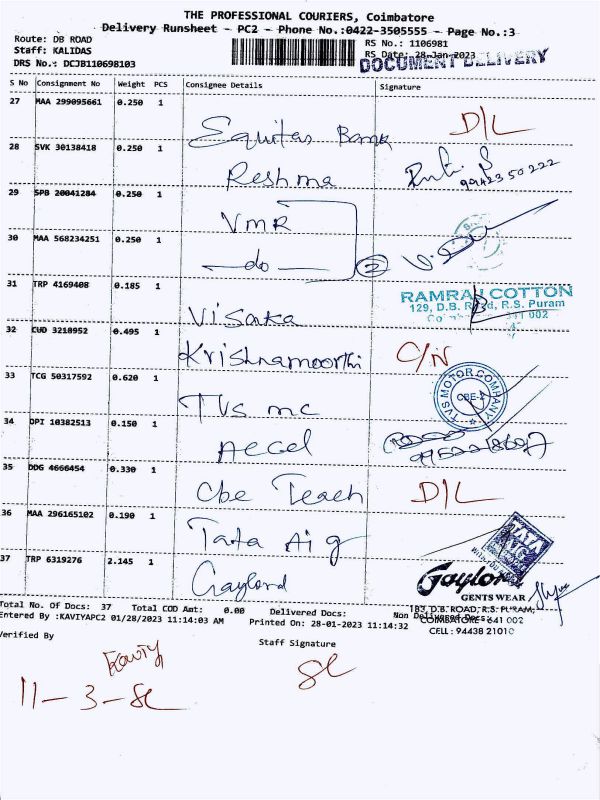 THE PROFESSIONAL COURIERS, Coimbatore
Delivery Runsheet - PC2 - Phone No.:0422-3505555 - Page No.:3
Route: DB ROAD
Staff: KALIDAS
DRS No.: DCJB110698103
RS No.: 1106981
RS Date: 28-Jan-2023
DOCUMENT DELIVERY
S No Consignment No Weight PCS Consignee Details Signature
27 MAA 299095661 0.250 1 Equitas Bank D/L
28 SVK 30138418 0.250 1 Reshma 9942350222
29 SPB 20041284 0.250 1 VMR
30 MAA 568234251 0.250 1 do 2
31 TRP 4169408 0.185 1 Visaka
RAMRAJ COTTON
129, D.B. Road, R.S. Puram
32 CUD 3218952 0.495 1 Krishnamoorthi C/N
33 TCG 50317592 0.620 1 TVS mc
TVS MOTOR COMPANY
CBE-2
34 OPI 10382513 0.150 1 Accel
35 DDG 4666454 0.330 1 Cbe Teach D/L
36 MAA 296165102 0.190 1 Tata Aig
TATA AIG
37 TRP 6319276 2.145 1 Gaylord
Gaylord
GENTS WEAR
183, D.B. ROAD, R.S. PURAM,
COIMBATORE - 641 002
CELL : 94438 21010
Total No. Of Docs: 37 Total COD Amt: 0.00 Delivered Docs: Non Delivered Docs:
Entered By :KAVIYAPC2 01/28/2023 11:14:03 AM Printed On: 28-01-2023 11:14:32
Verified By Staff Signature
11-3-